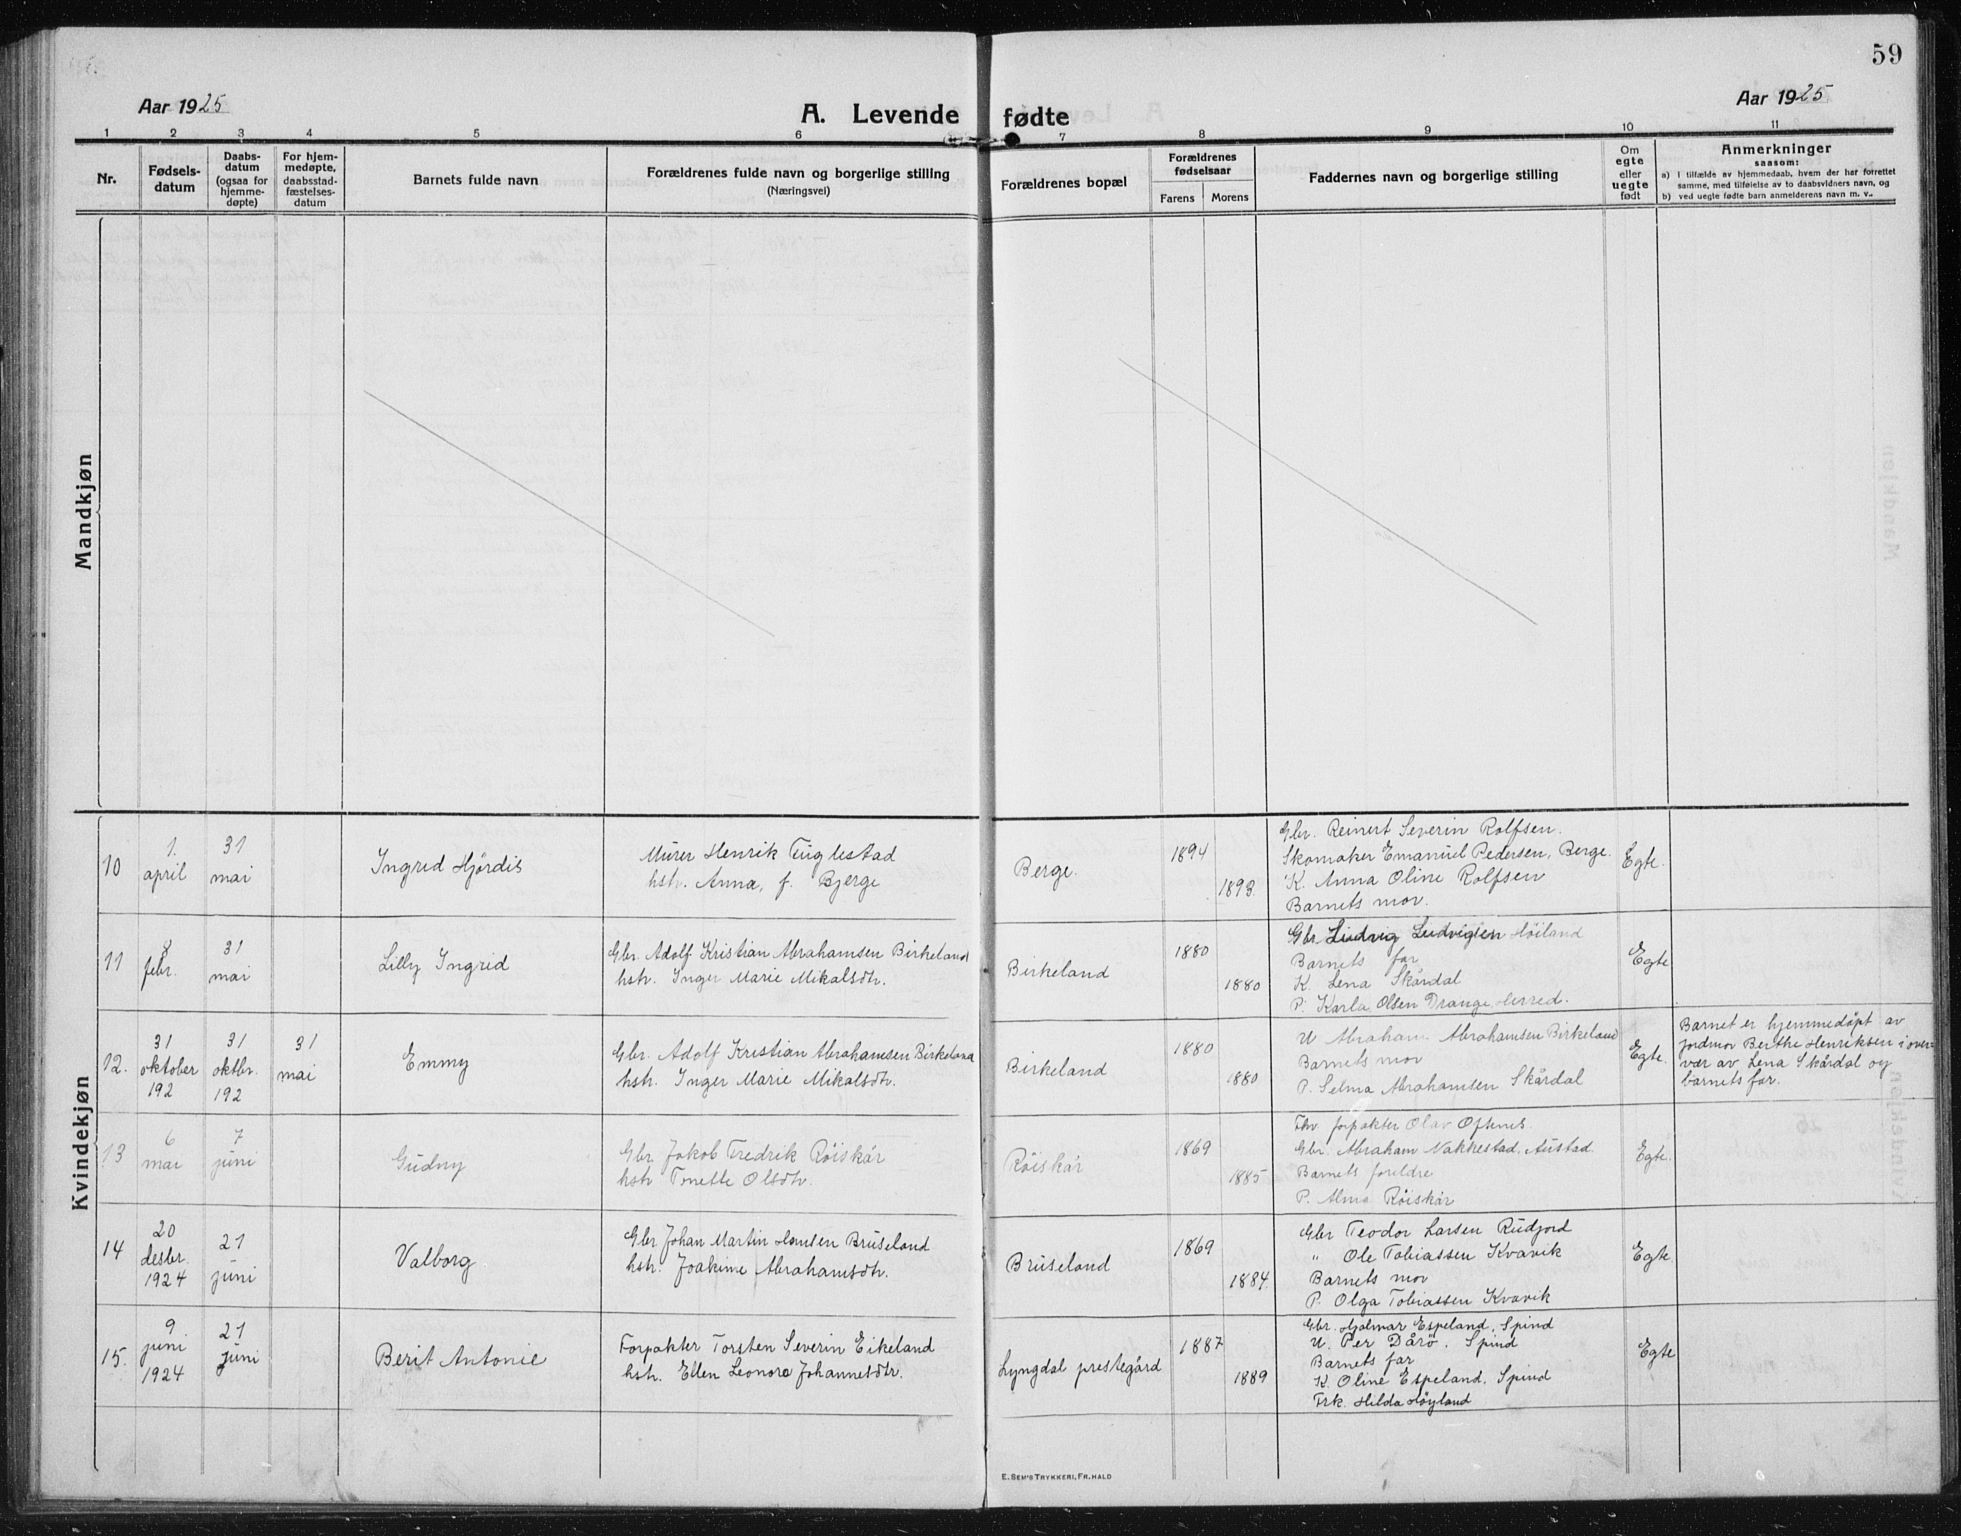 59
Aar 1925
A. Levende fødte
Aar 1925
1 2 3 4 5 6 7 8 9 10 11
Nr.
Fødsels-
datum
Daabs-
datum
(ogsaa for
hjemme-
døpte)
For hjem-
medøpte,
daabsstad-
fæstelses-
datum
Barnets fulde navn
Forældrenes fulde navn og borgerlige stilling
(Næringsvei)
Forældrenes bopæl
Forældrenes
fødselsaar
Farens Morens
Faddernes navn og borgerlige stilling
Om
egte
eller
uegte
født
Anmerkninger
saasom:
a) I tilfælde av hjemmedaab, hvem der har forrettet
samme, med tilføielse av to daabsvidners navn, og
b) ved uegte fødte barn anmelderens navn m. v..
Mandkjøn
Kvindekjøn
10
1.
april
31
mai
Ingrid Hjördis
Murer Henrik Fuglestad
hstr. Anna, f. Bjerge
Berge.
1894
1893.
Gbr. Reinert Severin Rolfsen.
Skomaker Emanuel Pedersen, Berge.
K. Anna Oline Rolfsen
Barnets mor.
Egte.
11
8
febr.
31
mai
Lilly Ingrid
Gbr. Adolf Kristian Abrahamsen Birkeland
hstr. Inger Marie Mikalsdtr.
Birkeland
1880
1880
Gbr. Ludvig Ludvigsen Höiland
Barnets far
K. Lena Skårdal
P. Karla Olsen Drange Herred.
Egte
12.
31
oktober
192
31
oktbr.
192
31
mai
Emmy
Gbr. Adolf Kristian Abrahamsen Birkeland
hstr. Inger Marie Mikalsdtr.
Birkeland
1880
1880
U Abraham Abrahamsen Birkeland
Barnets mor
P. Selma Abrahamsen Skårdal
Egte.
Barnet er hjemmedöpt av
jordmor Berthe Henriksen i over-
vær av Lena Skårdal og
barnets far.
13
6
mai
7
juni
Gudny
Gbr Jakob Fredrik Röiskår
hstr Tonette Olsdtr.
Röiskår
1869
1885
Fhv. forpakter Olav Oftenes.
Gbr. Abraham Nakkestad. Austad.
Barnets foreldre
P. Alma Röiskår
Egte.
14
20
desbr.
1924
21
juni
Valborg
Gbr Johan Martin Hansen Bruseland
hstr. Joakime Abrahamsdtr.
Bruseland
1869
1884.
Gbr Teodor Larsen Rudjord
" Ole Tobiassen Kvavik
Barnets mor
P. Olga Tobiassen Kvavik
Egte.
15.
9
juni
1924
21
juni
Berit Antonie
Forpakter Torsten Severin Eikeland
hstr. Ellen Leonore Johannesdtr.
Lyngdal prestegård
1887
1889
Gbr. Hjalmar Espeland, Spind
U. Per Dårö. Spind
Barnets far
K. Oline Espeland. Spind
Frk. Hilda Höyland
Egte
E. Sem's Trykkeri, Fr.hald